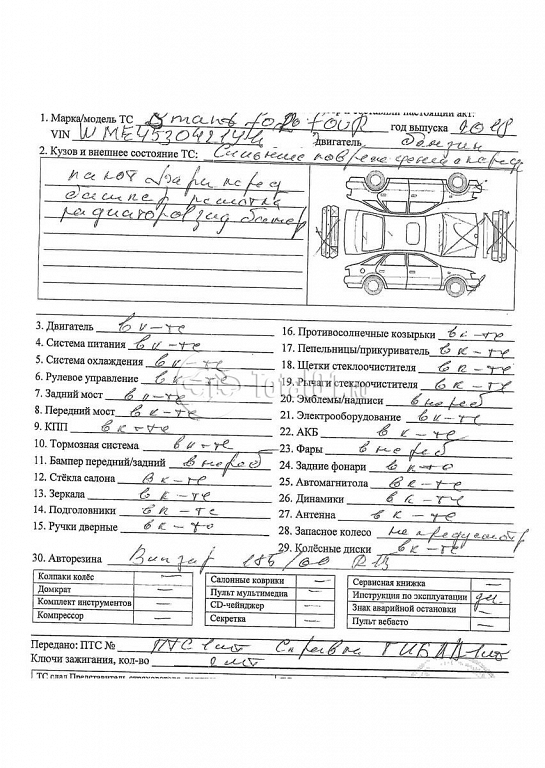 1. Марка/модель ТС Smart for four год выпуска
VIN WME453042 Двигатель бензин
2. Кузов и внешнее состояние ТС: Сильные повреждения перед
капот фары перед
бампер решетка
радиаторов зад бампер
3. Двигатель в к-те
4. Система питания в к-те
5. Система охлаждения в к-те
6. Рулевое управление в к-те
7. Задний мост в к-те
8. Передний мост в к-те
9. КПП в к-те
10. Тормозная система в к-те
11. Бампер передний/задний в нераб
12. Стёкла салона в к-те
13. Зеркала в к-те
14. Подголовники в к-те
15. Ручки дверные в к-те
16. Противосолнечные козырьки в к-те
17. Пепельницы/прикуриватель в к-те
18. Щетки стеклоочистителя в к-те
19. Рычаги стеклоочистителя в к-те
20. Эмблемы/надписи в нераб
21. Электрооборудование в к-те
22. АКБ в к-те
23. Фары в нераб
24. Задние фонари в к-те
25. Автомагнитола в к-те
26. Динамики в к-те
27. Антенна в к-те
28. Запасное колесо не предусмотр
29. Колёсные диски в к-те
30. Авторезина 185/60 R
Колпаки колёс —
Домкрат —
Комплект инструментов —
Компрессор —
Салонные коврики —
Пульт мультимедиа —
CD-чейнджер —
Секретка —
Сервисная книжка —
Инструкция по эксплуатации да
Знак аварийной остановки —
Пульт вебасто —
Передано: ПТС № ПТС 1шт Справки ГИБДД
Ключи зажигания, кол-во шт